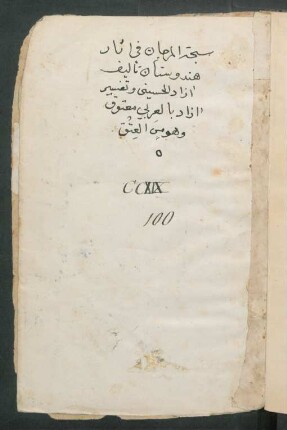 سبحة المرجان في اثار
هندوستان تاليف
ازاد الحسيني وتفسير
ازاد بالعربي معتوق
وهو من العتق
٥
CCXIX
100